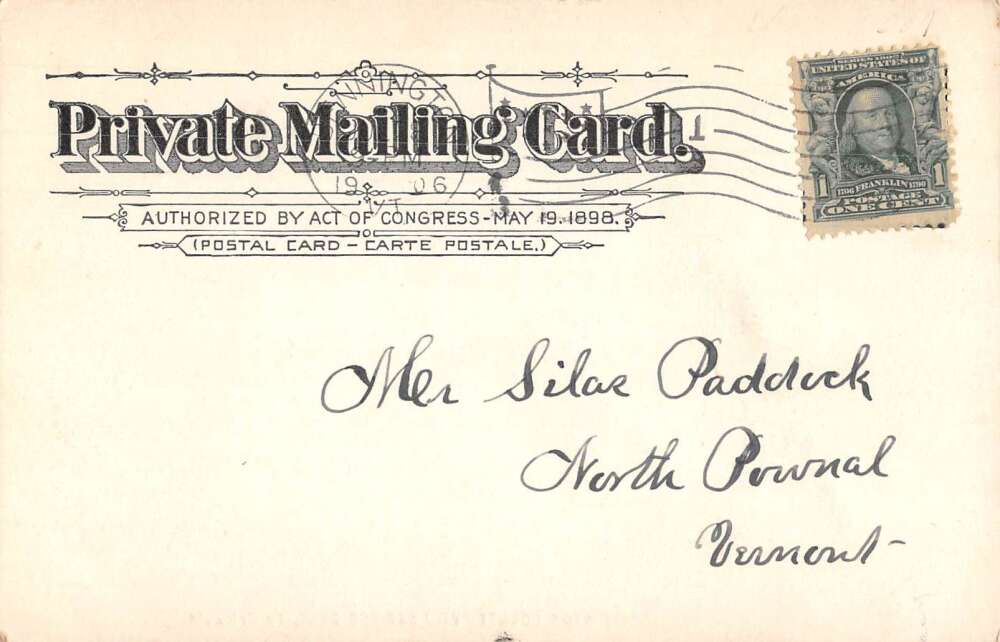 Private Mailing Card.
AUTHORIZED BY ACT OF CONGRESS-MAY 19, 1898.
(POSTAL CARD – CARTE POSTALE.)
NNINGT
PM
19 06
VT
1
UNITED STATES OF
AMERICA
1 1706 FRANKLIN 1790 1
POSTAGE
ONE CENT
Mr Silas Paddock
North Pownal
Vermont